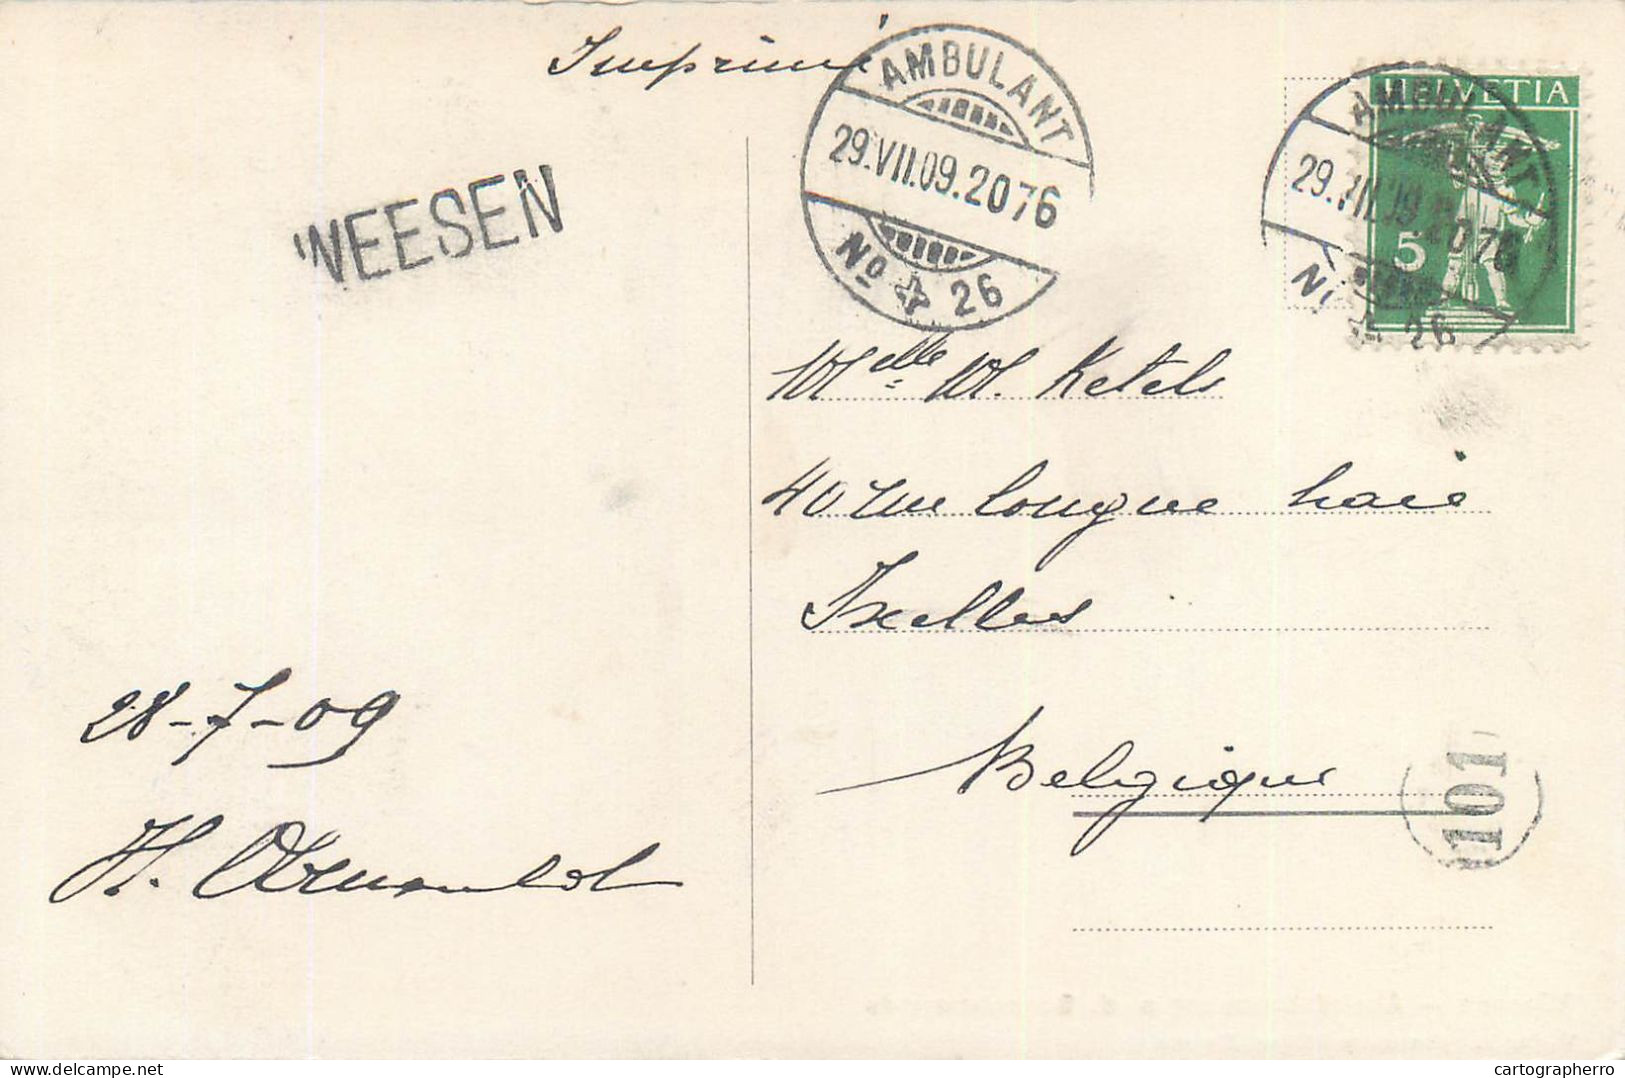 Imprimé
AMBULANT
29.VII.09.2076
No 26
HELVETIA
5
AMBULANT
29.VII.09.2076
No 26
WEESEN
Melle M. Ketels
40 rue longue haie
Ixelles
Belgique
101
28-7-09
H.
cartographerro